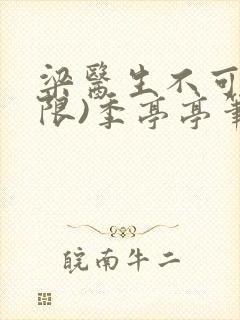 梁醫生不可
限)季亭亭筆
皖南牛二